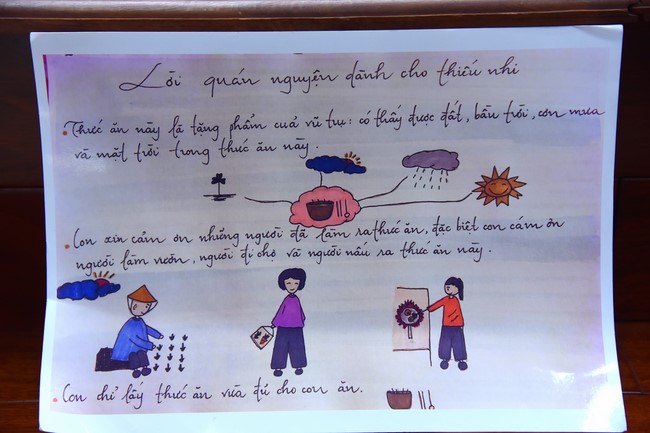 Lời quán nguyện dành cho thiếu nhi
Thức ăn này là tặng phẩm cuả vũ trụ: có thấy được đất, bầu trời, cơn mưa
và mặt trời trong thức ăn này.
Con xin cảm ơn những người đã làm ra thức ăn, đặc biệt con cám ơn
người làm vườn, người đi chợ và người nấu ra thức ăn này.
Con chỉ lấy thức ăn vừa đủ cho con ăn.